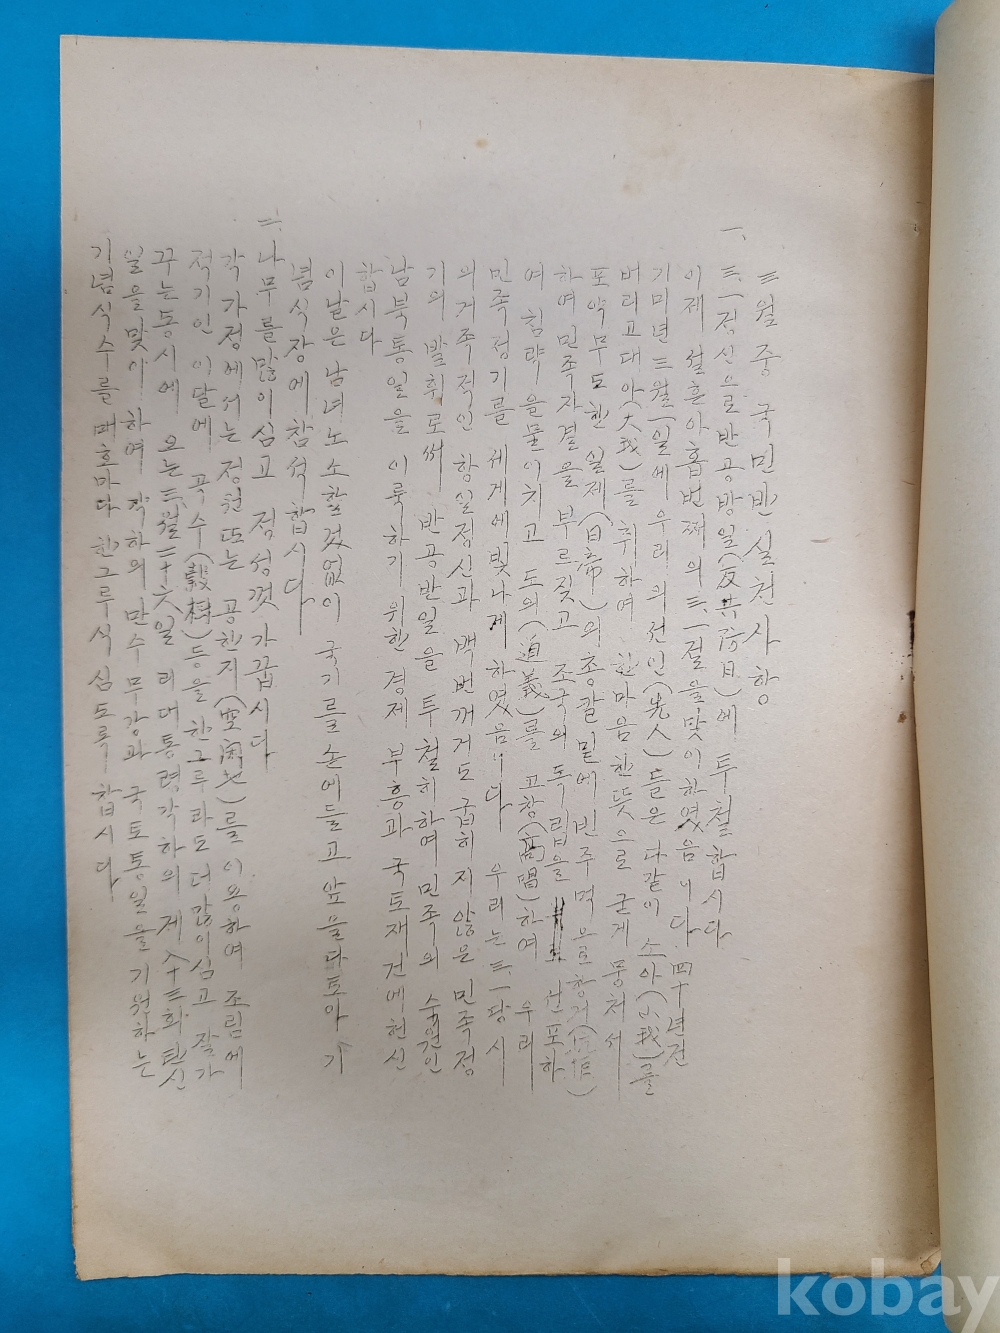 三월중 국민반 실천사항
一、三、一정신으로 반공방일(反共防日)에 투철합시다
이제 설흔아홉번째의 三、一절을 맞이하였음니다. 四十년전
기미년 三월一일에 우리의 선인(先人)들은 다같이 소아(小我)를
버리고 대아(大我)를 취하여 한마음 한뜻으로 굳게 뭉처서
포악무도한 일제(日帝)의 총칼밑에 빈주먹으로 항거
하여 민족자결을 부르짖고 조국의 독립을 선포하
여 침략을 물이치고 도의(道義)를 고창(高唱)하여 우리
민족정기를 세계에 빛나게 하였음니다 우리는 三、一당시
의 거족적인 항일정신과 백번꺼거도 굽히지 않은 민족정
기의 발휘로써 반공반일을 투철히하여 민족의 숙원인
남북통일을 이룩하기 위한 경제부흥과 국토재건에 헌신
합시다
이날은 남녀노소할것없이 국기를 손에들고 앞을다토아 기
념식장에 참석합시다
二、나무를 많이심고 정성껏 가꿉시다
각가정에서는 정원또는 공한지(空閑地)를 이용하여 조림에
적기인 이달에 곡수(穀樹)등을 한그루라도 더많이심고 잘가
꾸는동시에 오는 三월二十六일 리대통령각하의 제八十三회 탄신
일을 맞이하여 각하의 만수무강과 국토통일을 기원하는
기념식수를 매호마다 한그루식 심도록 합시다
kobay